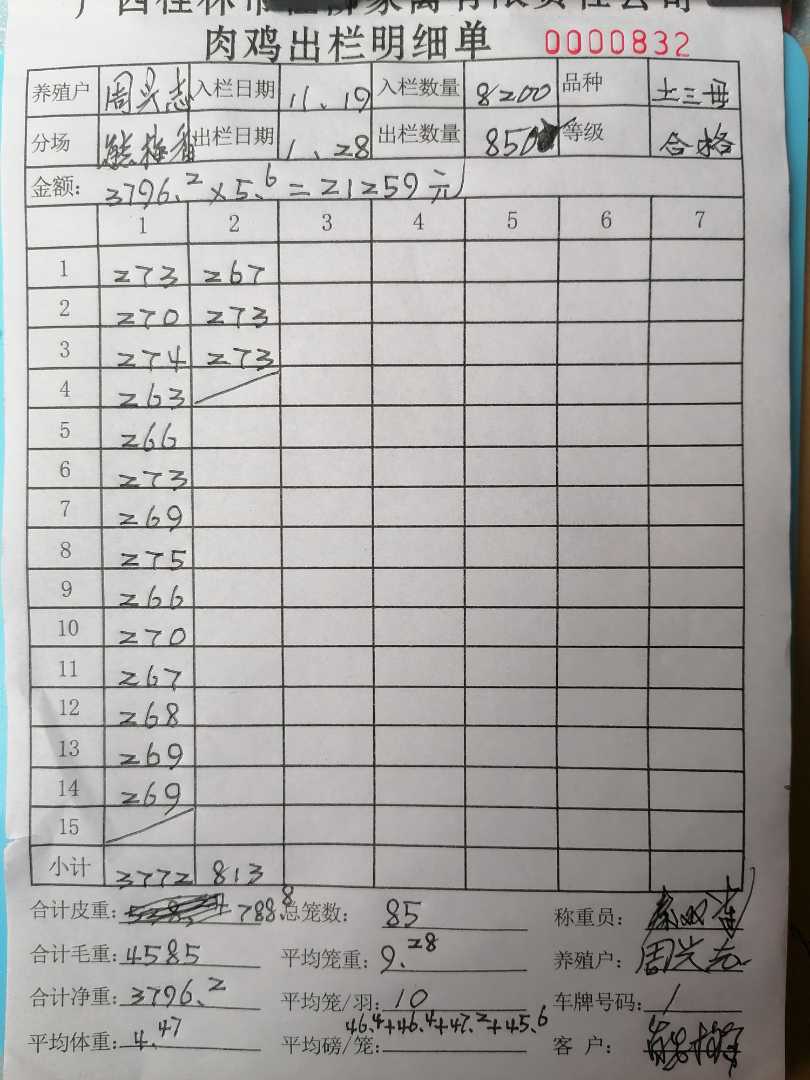 肉鸡出栏明细单 0000832
养殖户 周兴志 入栏日期 11.19 入栏数量 8200 品种 土三毋
分场 出栏日期 1.28 出栏数量 850 等级 合格
金额: 3796.2×5.6=21259元
1 2 3 4 5 6 7
1 273 267
2 270 273
3 274 273
4 263
5 266
6 273
7 269
8 275
9 266
10 270
11 267
12 268
13 269
14 269
15
小计 3772 813
合计皮重: 788.8 总笼数: 85 称重员:
合计毛重: 4585 平均笼重: 9.28 养殖户: 周兴志
合计净重: 3796.2 平均笼/羽: 10 车牌号码: /
46.4+46.4+47.2+45.6
平均体重: 4.47 平均磅/笼: 客 户: